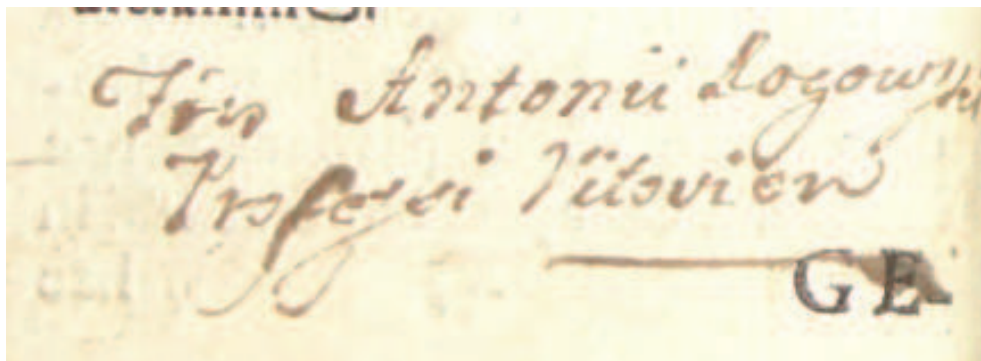 Fris Antonii Rogowski
Professi Vitovien
GE-